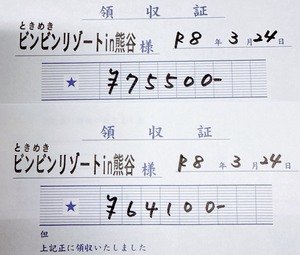 領収証
ときめき
ビンビンリゾートin熊谷様 R8年3月24日
★ ¥75500-
領収証
ときめき
ビンビンリゾートin熊谷様 R8年3月24日
★ ¥64100-
但
上記正に領収いたしました